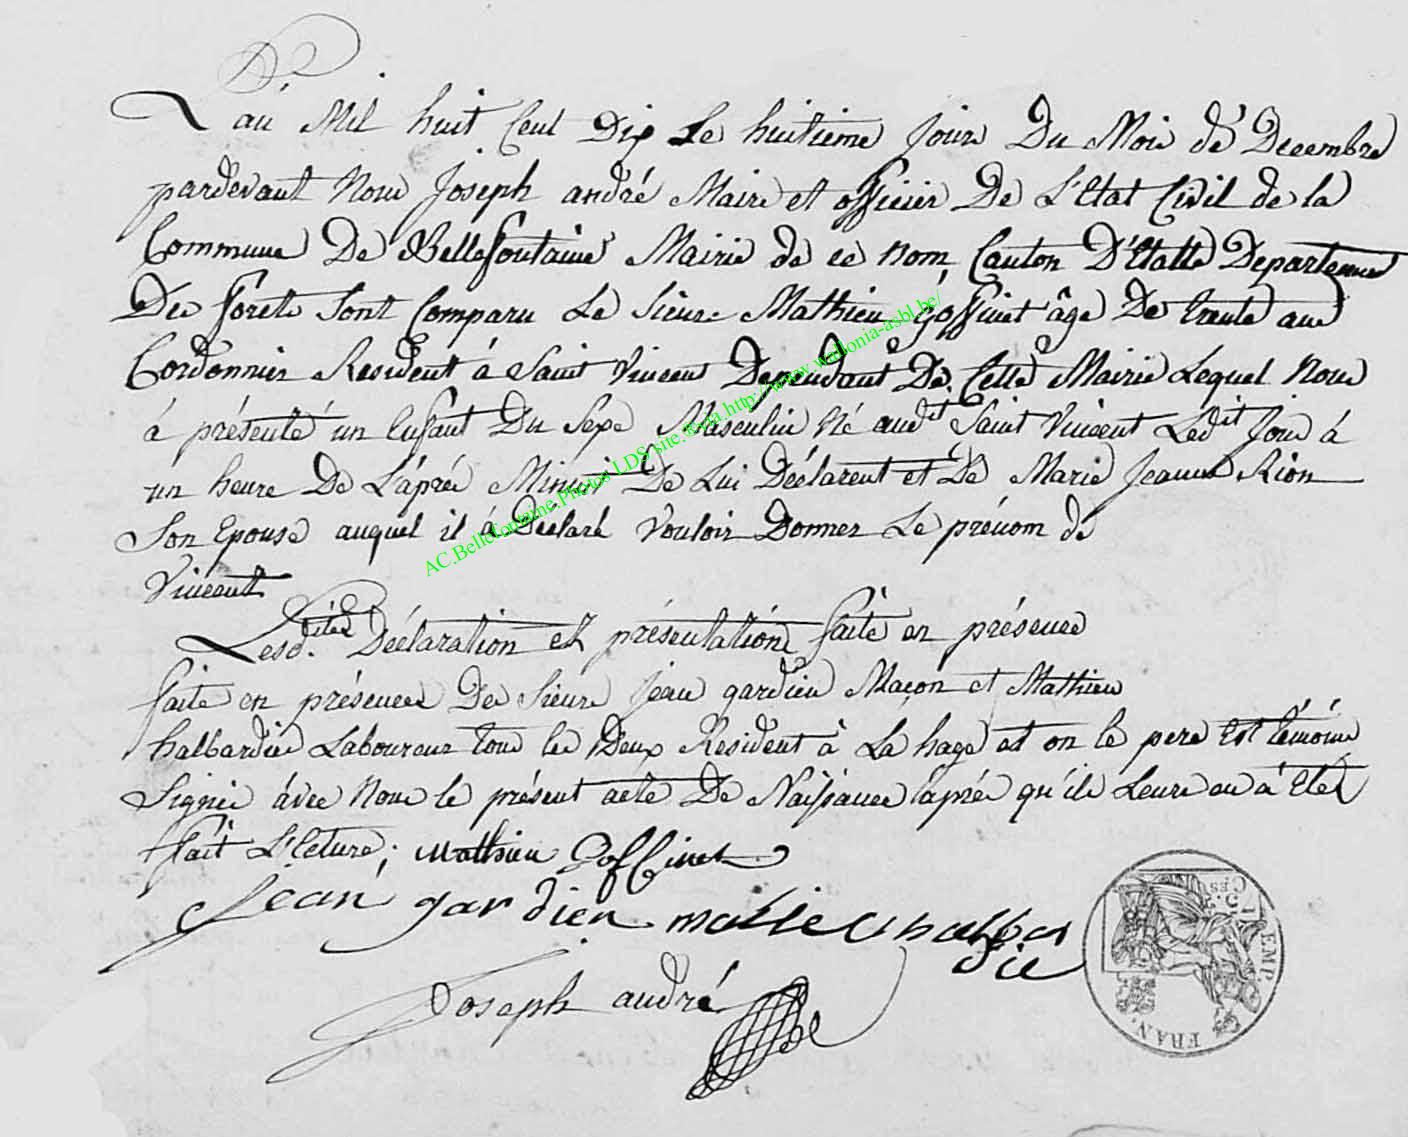 L'an Mil huit Cent Dix Le huitieme Jour Du Mois de Decembre
pardevant Nous Joseph andré Maire et officier De L'Etat Civil de la
Commune De Bellefontaine Mairie de ce nom, Canton D'Etalle Departement
Des forets Sont Comparu Le Sieur Mathieu Goffinet âge De trente ans
Cordonnier Resident á Saint Vincent Dependant De Cette Mairie Lequel Nous
á présenté un Enfant Du Sexe Masculin Né audit Saint Vincent Ledit Jour á
un heure De L'áprés Minuit De Lui Déclarent et De Marie Jeanne Rion
Son Epouse auquel il á Déclaré Vouloir Donner Le prénom de
Vincent
Lesdites Déclaration et présentation faite en présence
faite en présences Des Sieurs Jean gardien Maçon et Mathieu
halbardier Laboureur tous les Deux Resident à La hage et on le pere Est témoins
Signés ávec Nous le présent acte De Naissance áprés qu'ils Leurs en á Eté
fait L'lcture; Mathieu Goffinet
Jean gardien mathieu halbar
die
Joseph andré
AC.Bellefontaine.Photos LDS site via http://www.wallonia-asbl.be/
EMP. FRAN.